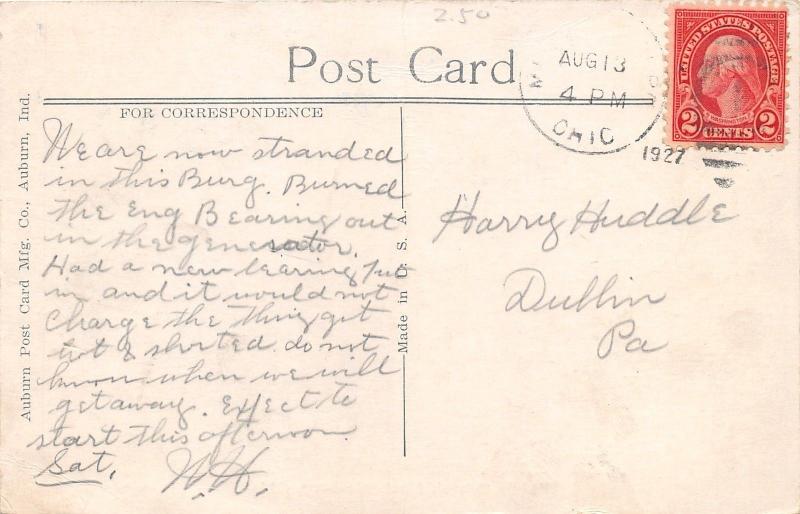 2.50
Post Card
AUG 13
4 PM
OHIO
1927
UNITED STATES POSTAGE
WASHINGTON
2 CENTS 2
FOR CORRESPONDENCE
We are now stranded
in this Burg. Burned
the Eng Bearing out
in the generator.
Had a new bearing put
in and it would not
charge the thing get
hot & shorted. do not
know when we will
get away. Expect to
start this afternoon
Sat,
Harry Huddle
Dublin
Pa
Auburn Post Card Mfg. Co., Auburn, Ind.
Made in U. S. A.